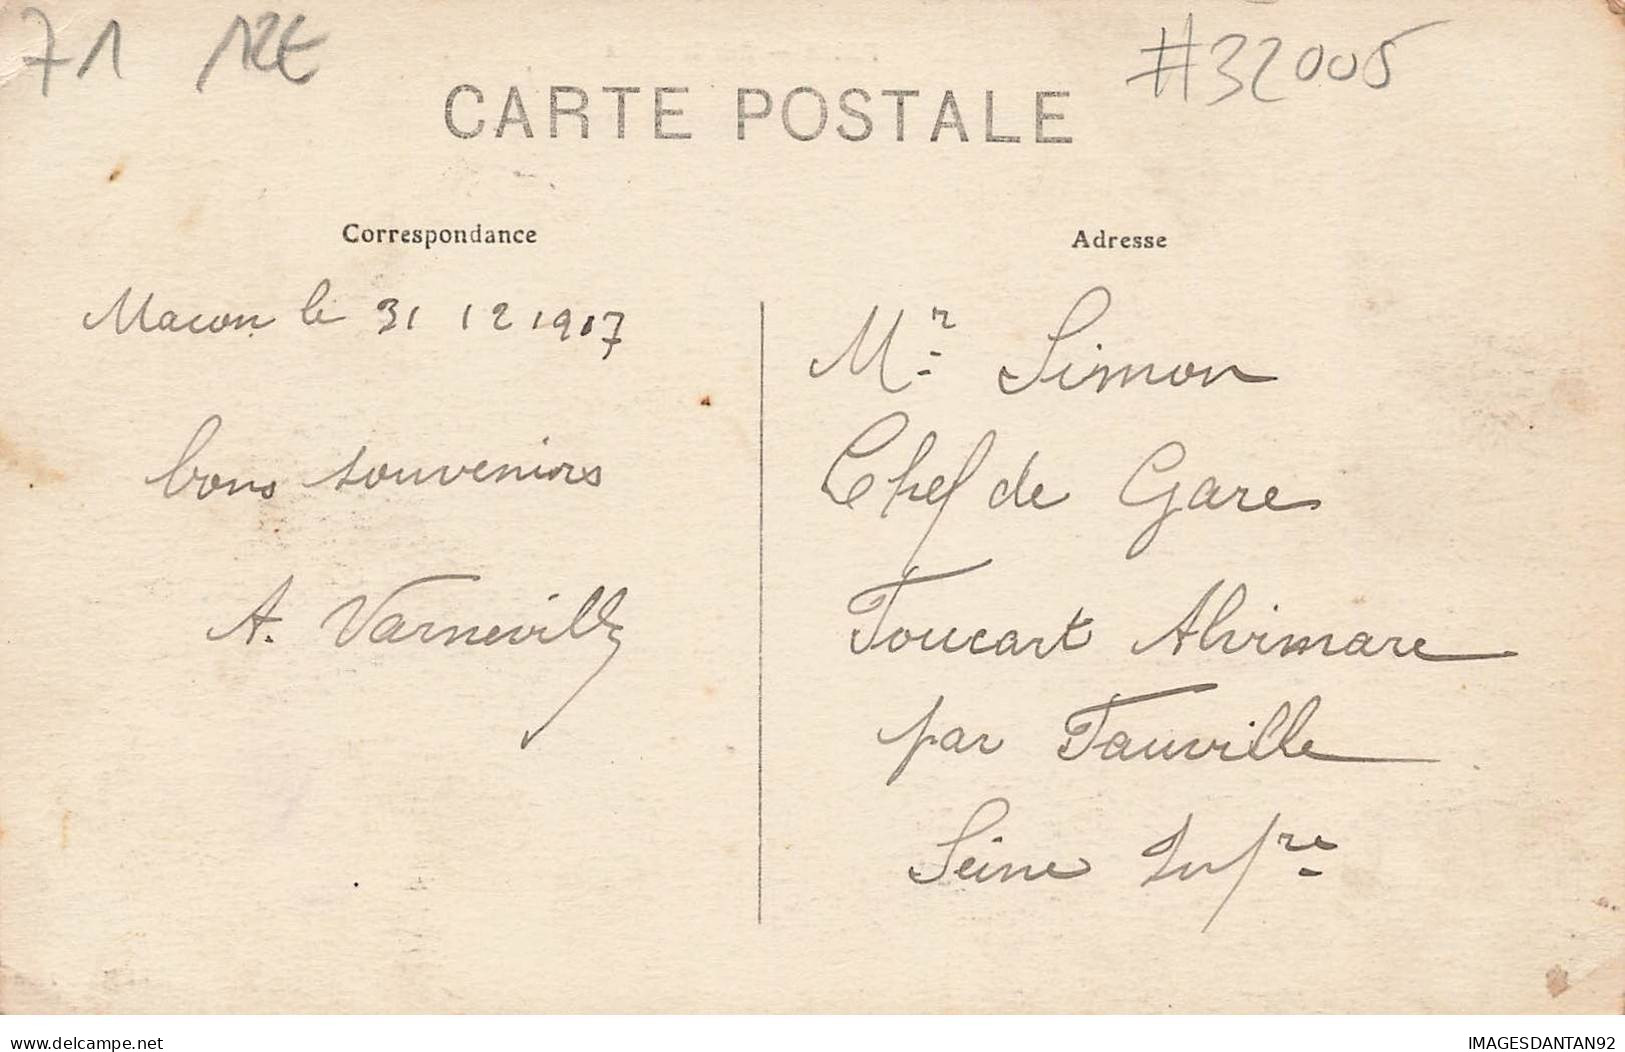 71 12€ #32005
CARTE POSTALE
Correspondance
Macon le 31 12 1917
bons souvenirs
A. Varneville
Adresse
Mr Simon
Chef de Gare
Foucart Alvimare
par Fauville
Seine Infre
www.delcampe.net
IMAGESDANTAN92